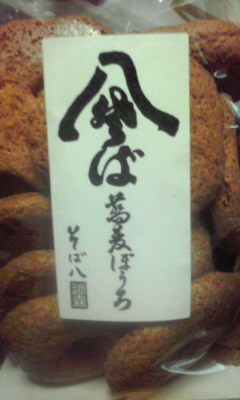 八楚ば
蕎麦ぼうろ
そば八